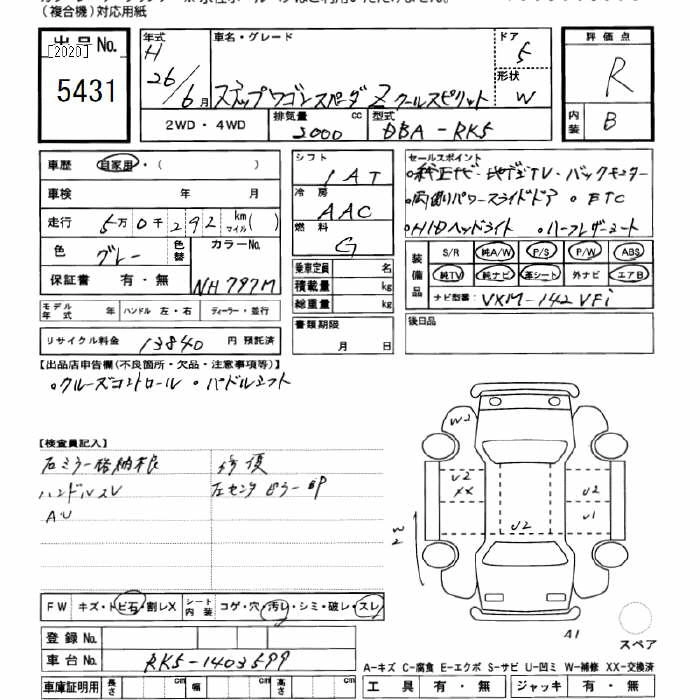 （複合機）対応用紙
出品No.
[2020]
5431
年式
H
26/6月
車名・グレード
ステップワゴンスパーダ Z クールスピリット
ドア
5
形状
W
2WD・4WD
排気量
cc
2000
型式
DBA-RK5
評価点
R
内装
B
車歴
自家用・（ ）
車検 年 月
走行 5万0千292 km マイル( )
色 グレー
色替
カラーNo.
NH797M
保証書 有・無
モデル年式 年 ハンドル 左・右 ディーラー・並行
リサイクル料金 13840 円預託済
シフト
1AT
冷房
AAC
燃料
G
乗車定員 名
積載量 kg
総重量 kg
書類期限
月 日
セールスポイント
・純正ナビ・地デジTV・バックモニター
・両側パワースライドドア ・ETC
・HIDヘッドライト ・ハーフレザーシート
装備品
S/R 純A/W P/S P/W ABS
純TV 純ナビ 革シート 外ナビ エアB
ナビ型番: VXM-142VFi
後日品
【出品店申告欄(不良箇所・欠品・注意事項等)】
・クルーズコントロール ・パドルシフト
【検査員記入】
右ミラー格納不良
ハンドルスレ
AU
修復
左センターピラー
W2
U2
XX
U2
U1
U2
W2
A1
スペア
FW キズ・トビ石・割レX
シート内装 コゲ・穴・汚レ・シミ・破レ・スレ
登録No.
車台No. RK5-1403599
車庫証明用 長さ cm 幅 cm 高さ cm
A-キズ C-腐食 E-エクボ S-サビ U-凹ミ W-補修 XX-交換済
工具 有・無 ジャッキ 有・無